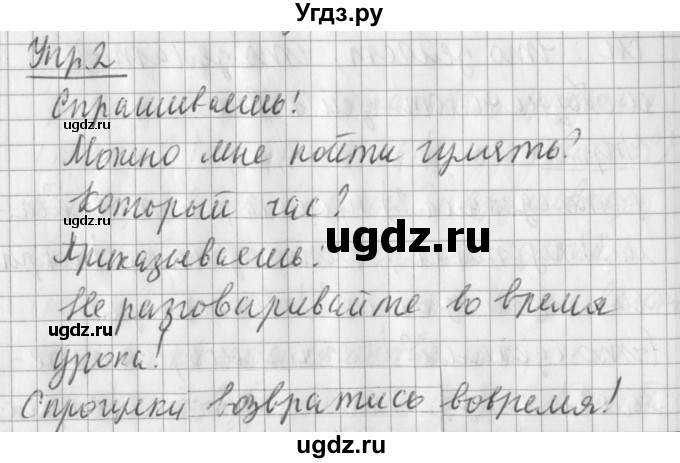 Угдз.ру
Упр.2
Спрашиваешь!
ugdz.ru
Можно мне пойти гулять?
ugdz.ru
Который час?
ugdz.ru
Приказываешь!
ugdz.ru
Не разговаривайте во время
ugdz.ru
урока!
С прогулки возвратись вовремя!
ugdz.ru